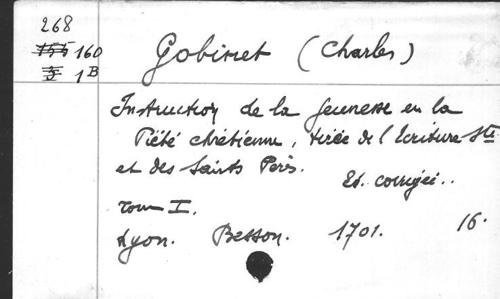 268
155 160
V 1B
Gobinet (Charles)
Instruction de la Jeunesse en la
Piété chrétienne, tirée de l'Ecriture Ste
et des Saints Pères.
Ed. corrigée..
tome I.
Lyon. Besson. 1701. 16.